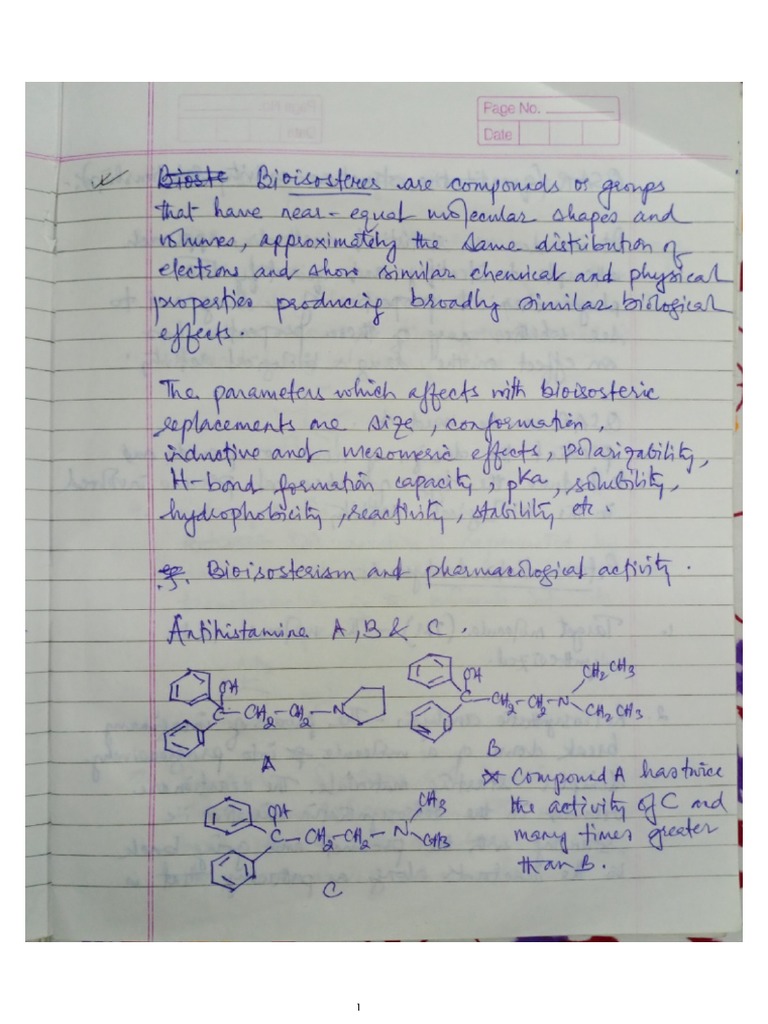 Page No.
Date
Bioste Bioisosteres are compounds or groups
that have near-equal molecular shapes and
volumes, approximately the same distribution of
electrons and show similar chemical and physical
properties producing broadly similar biological
effects.
The parameters which affects with bioisosteric
replacements are size, conformation,
inductive and mesomeric effects, polarizability,
H-bond formation capacity, pKa, solubility,
hydrophobicity, reactivity, stability etc.
eg. Bioisosterism and pharmacological activity.
Antihistamine A, B & C.
OH
C - CH2 - CH2 - N
A
OH
C - CH2 - CH2 - N
CH2 CH3
CH2 CH3
B
* Compound A has twice
the activity of C and
many times greater
than B.
OH
C - CH2 - CH2 - N
CH3
CH3
C
1